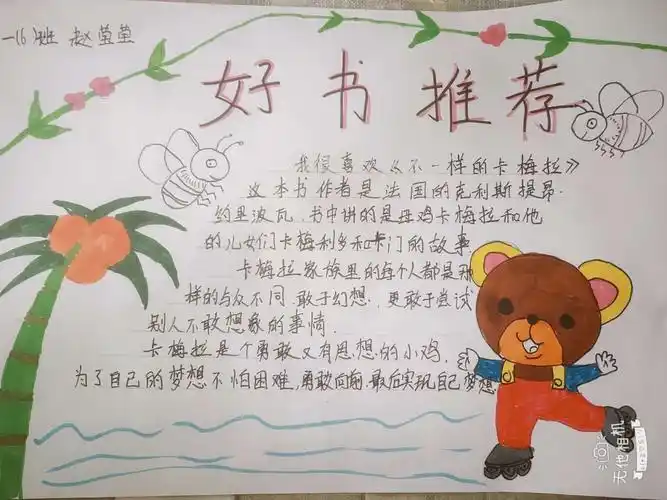 一(6)班 赵莹莹
好书推荐
我很喜欢《不一样的卡梅拉》
这本书作者是法国的克利斯提昂.
约里波瓦,书中讲的是母鸡卡梅拉和他
的儿女们卡梅利多和卡门的故事
卡梅拉家族里的每个人都是那
样的与众不同,敢于幻想,更敢于尝试
别人不敢想象的事情.
卡梅拉是个勇敢又有思想的小鸡,
为了自己的梦想不怕困难,勇敢向前,最后实现自己梦想
无他相机